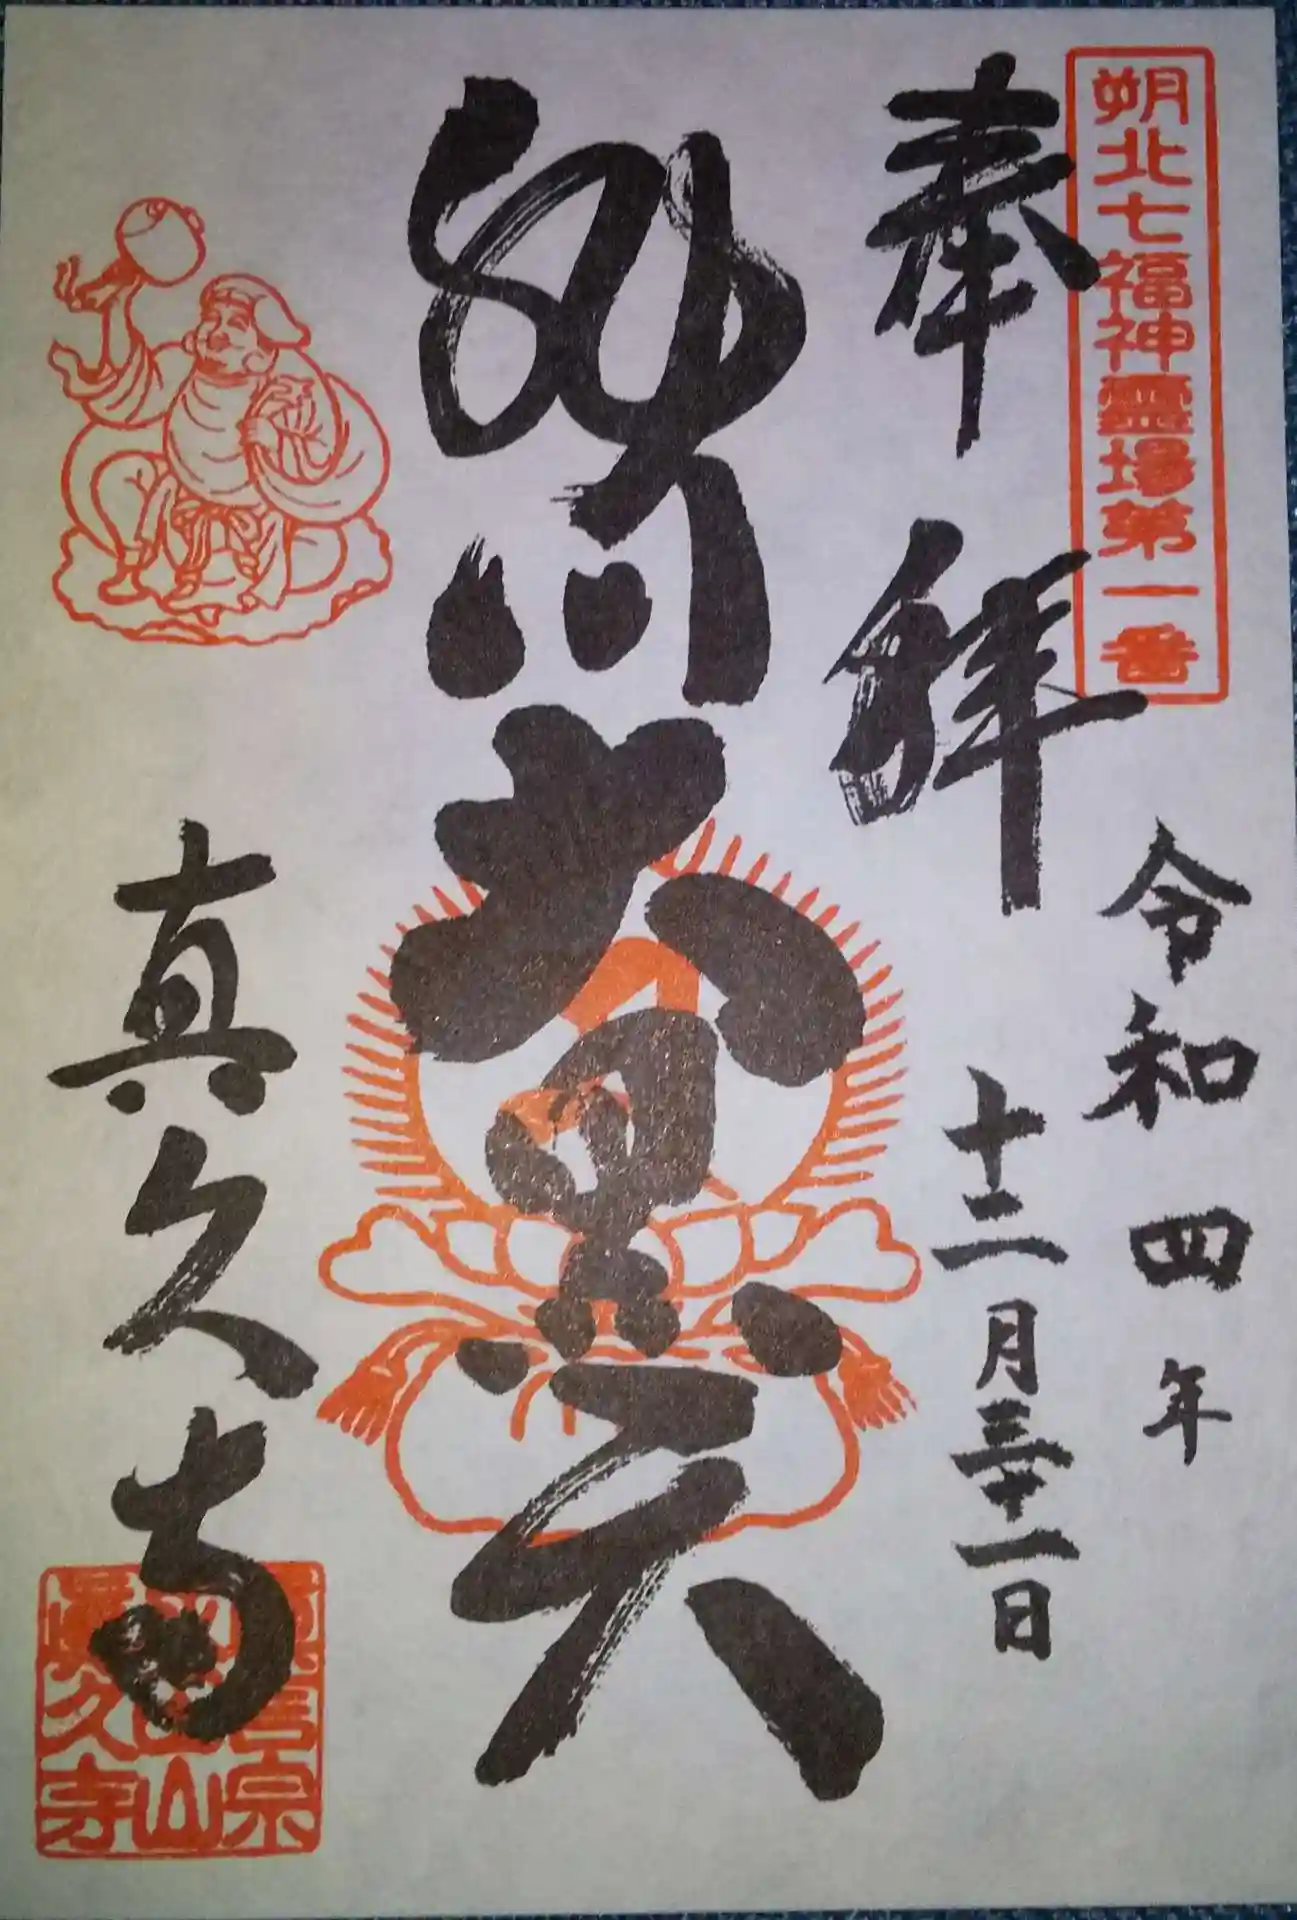 朔北七福神霊場第一番
奉拝
令和四年
十二月三十一日
大黒天
真久寺
真言宗
山
真久寺